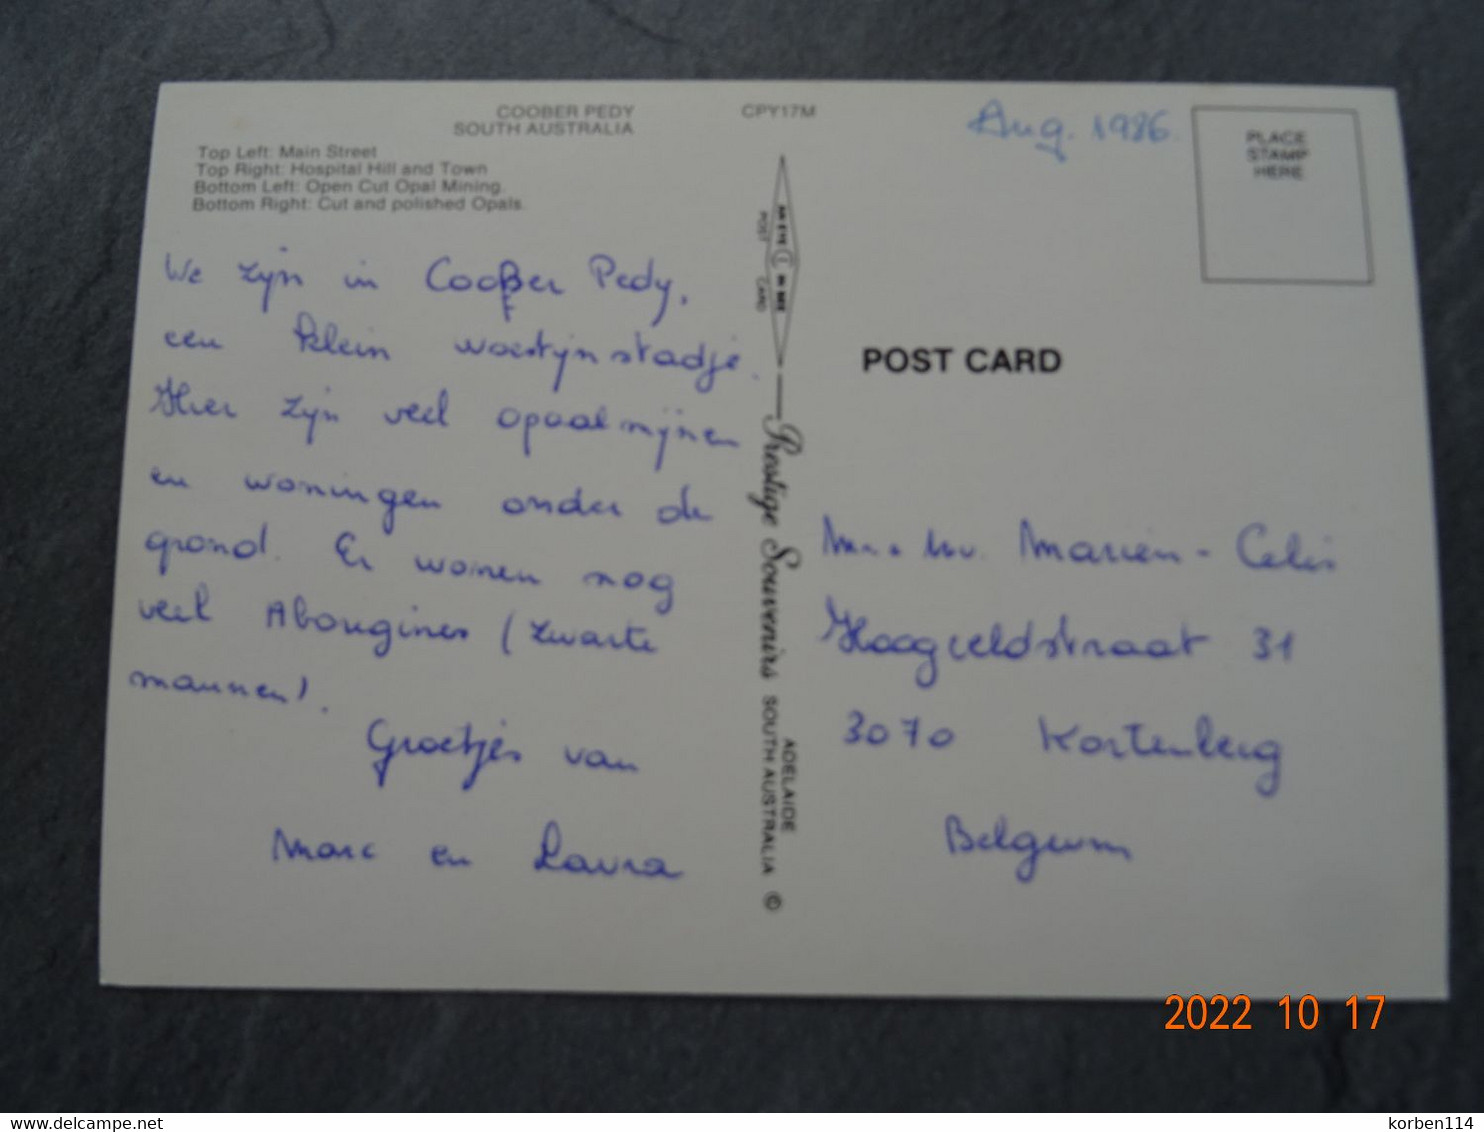 COOBER PEDY
SOUTH AUSTRALIA
Top Left: Main Street
Top Right: Hospital Hill and Town
Bottom Left: Open Cut Opal Mining.
Bottom Right: Cut and polished Opals.
We zijn in Coober Pedy,
een klein woestijnstadje.
Hier zijn veel opaalmijnen
en woningen onder de
grond. Er wonen nog
veel Aborigines (zwarte
mannen).
Groetjes van
Marc en Laura
CPY17M
POST CARD
Prestige Souvenirs
ADELAIDE
SOUTH AUSTRALIA ©
Aug. 1986
PLACE
STAMP
HERE
POST CARD
Marien - Celis
Hoogveldstraat 31
3070 Kortenberg
Belgium
2022 10 17
delcampe.net
korben114